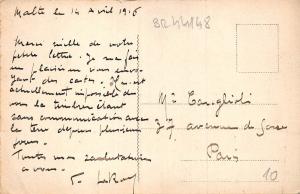 Malte le 14 Avril 1916
BR44148
Merci mille de votre
petite lettre. Je me fais
un plaisir vous envo-
yant des cartes. Il est
actuellement impossible de
vous la timbrer étant
sans communication avec
la terre depuis plusieurs
jours.
Toutes mes salutations
à vous
Mr
37 avenue de
Paris
10